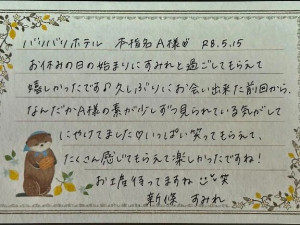 バリバリホテル 本指名A様♡ R8.5.15
お休みの日の始まりにすみれと過ごしてもらえて
嬉しかったです♪久しぶりにお会い出来た前回から、
なんだかA様の素が少しずつ見られている気がして
にやけてました♡いっぱい笑ってもらえて、
たくさん感じてもらえて楽しかったですね!
お土産待ってますね 笑
新 すみれ